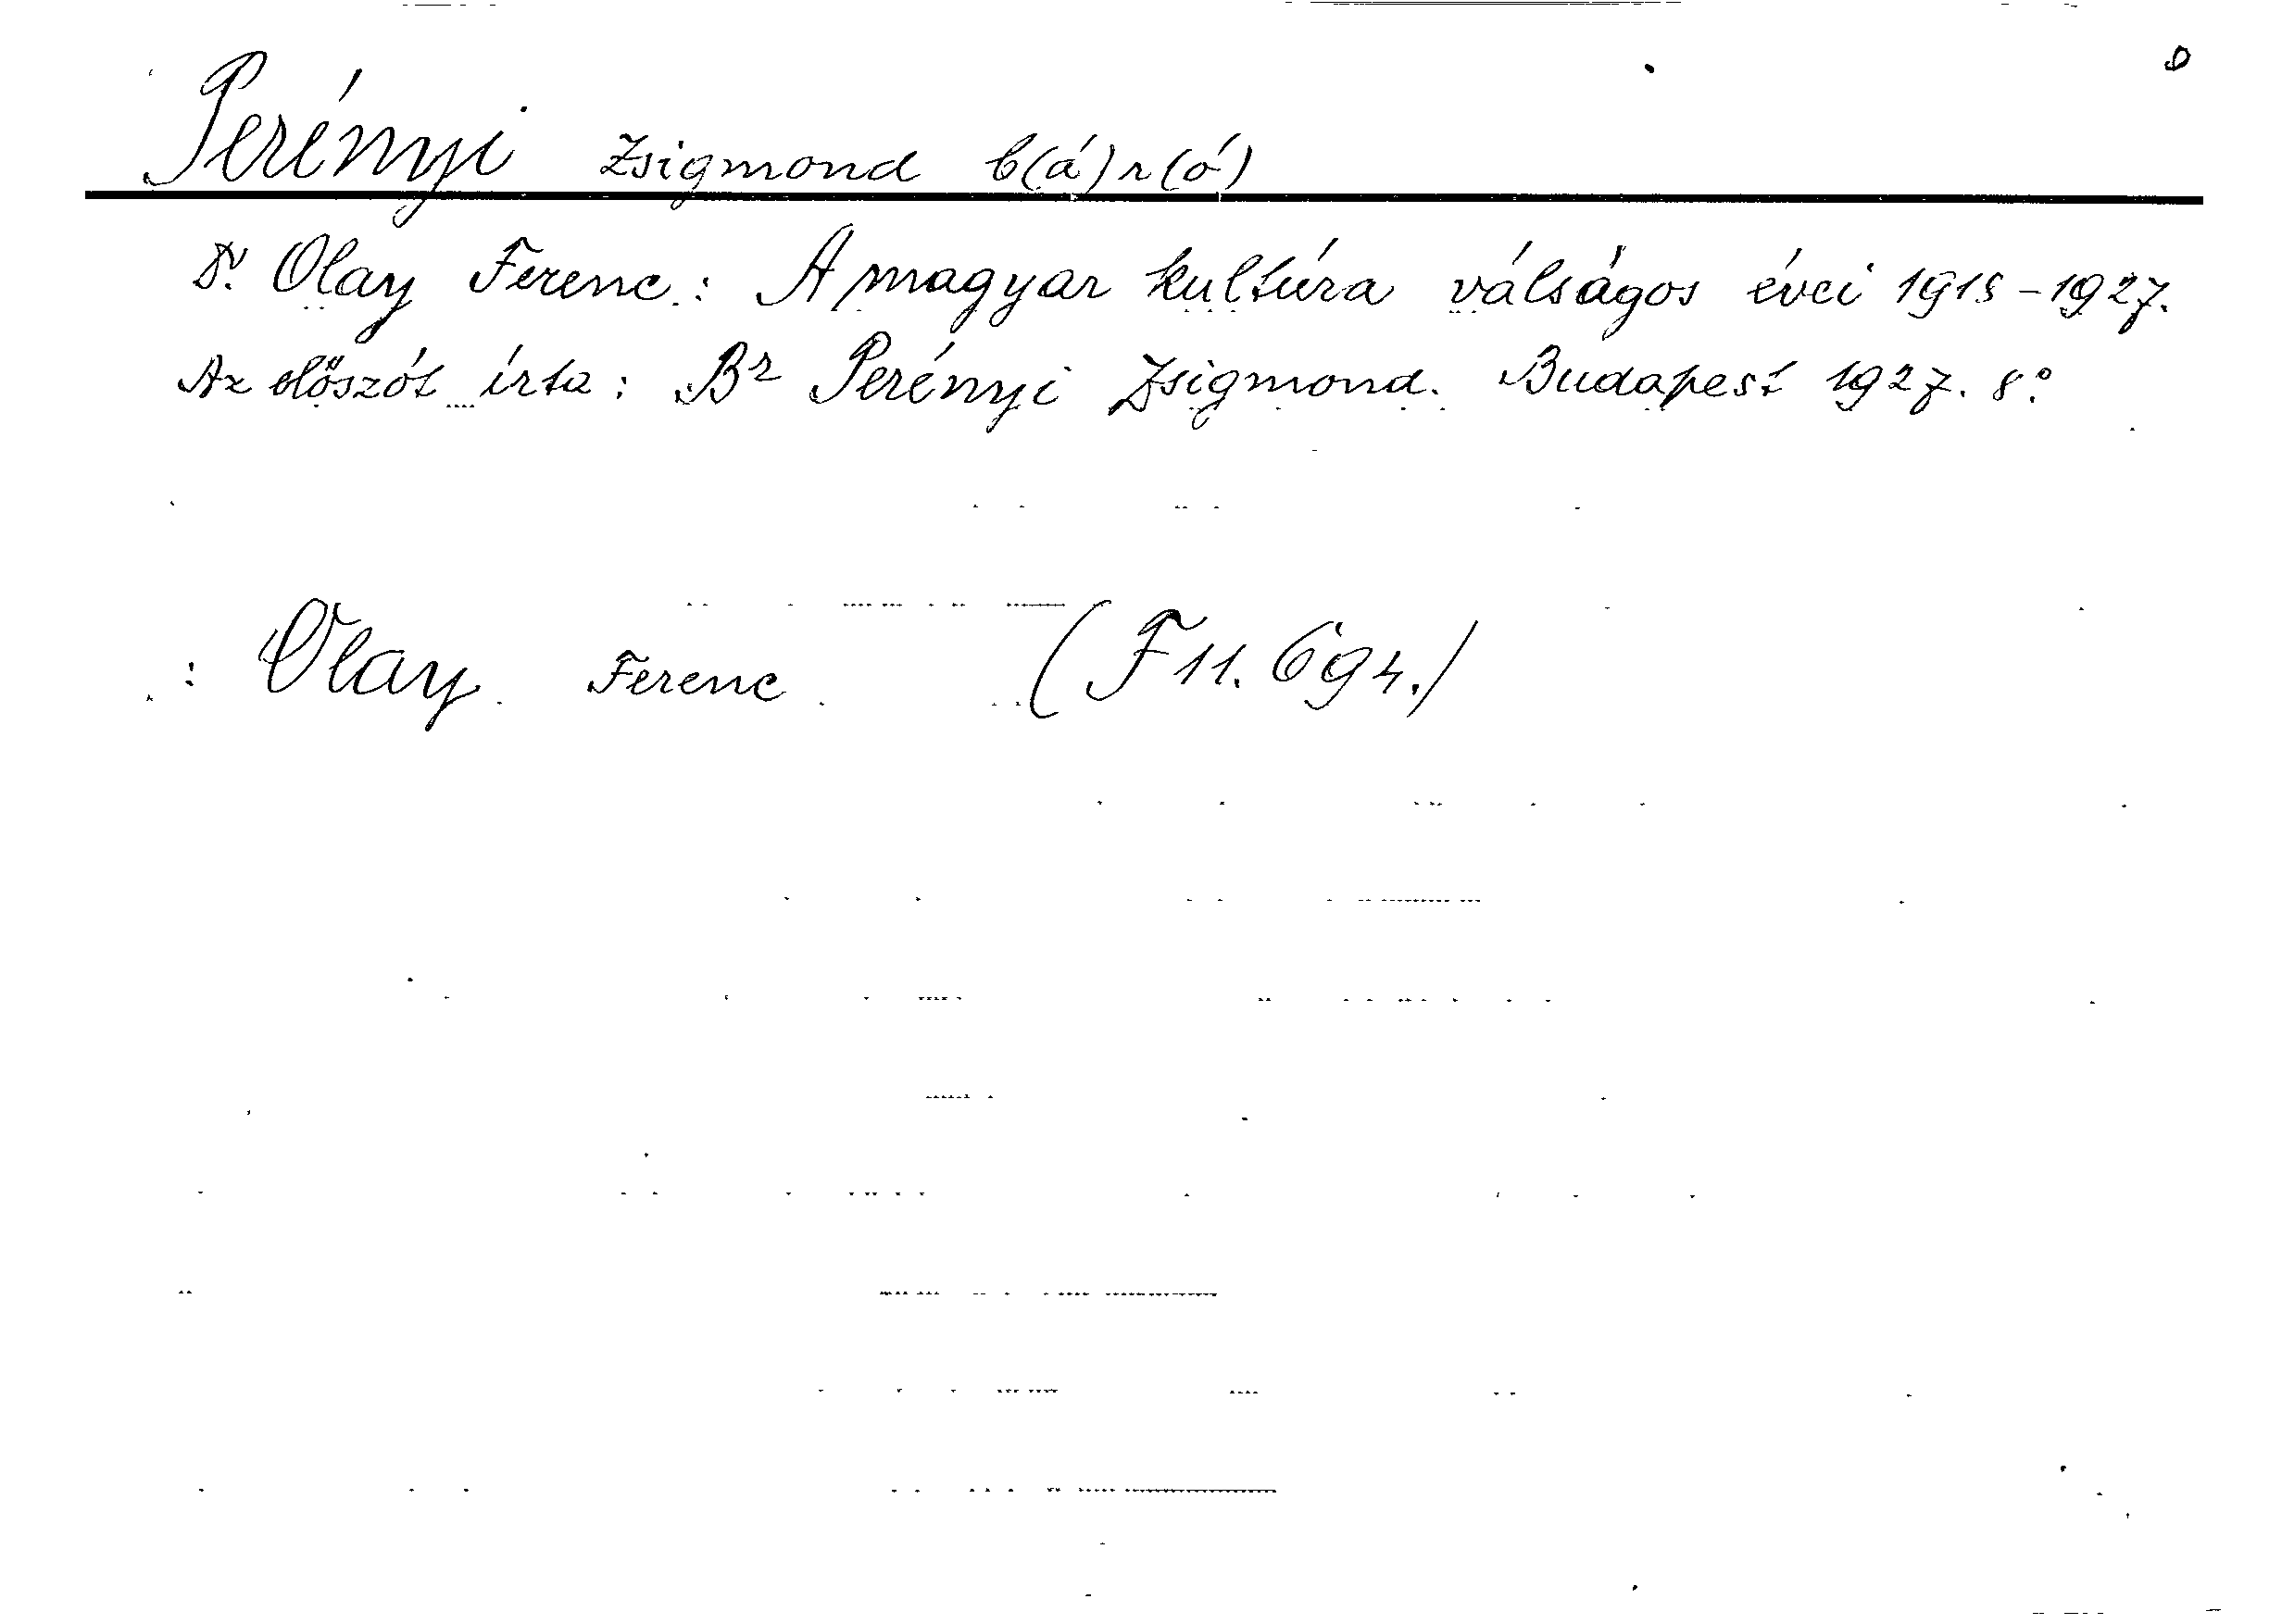 Perényi Zsigmond b(á)r(ó)
Dr. Olay Ferenc: A magyar kultúra válságos évei 1918-1927.
Az előszót írta: Br Perényi Zsigmond. Budapest 1927. 8°.
: Olay Ferenc (F 11. 694.)